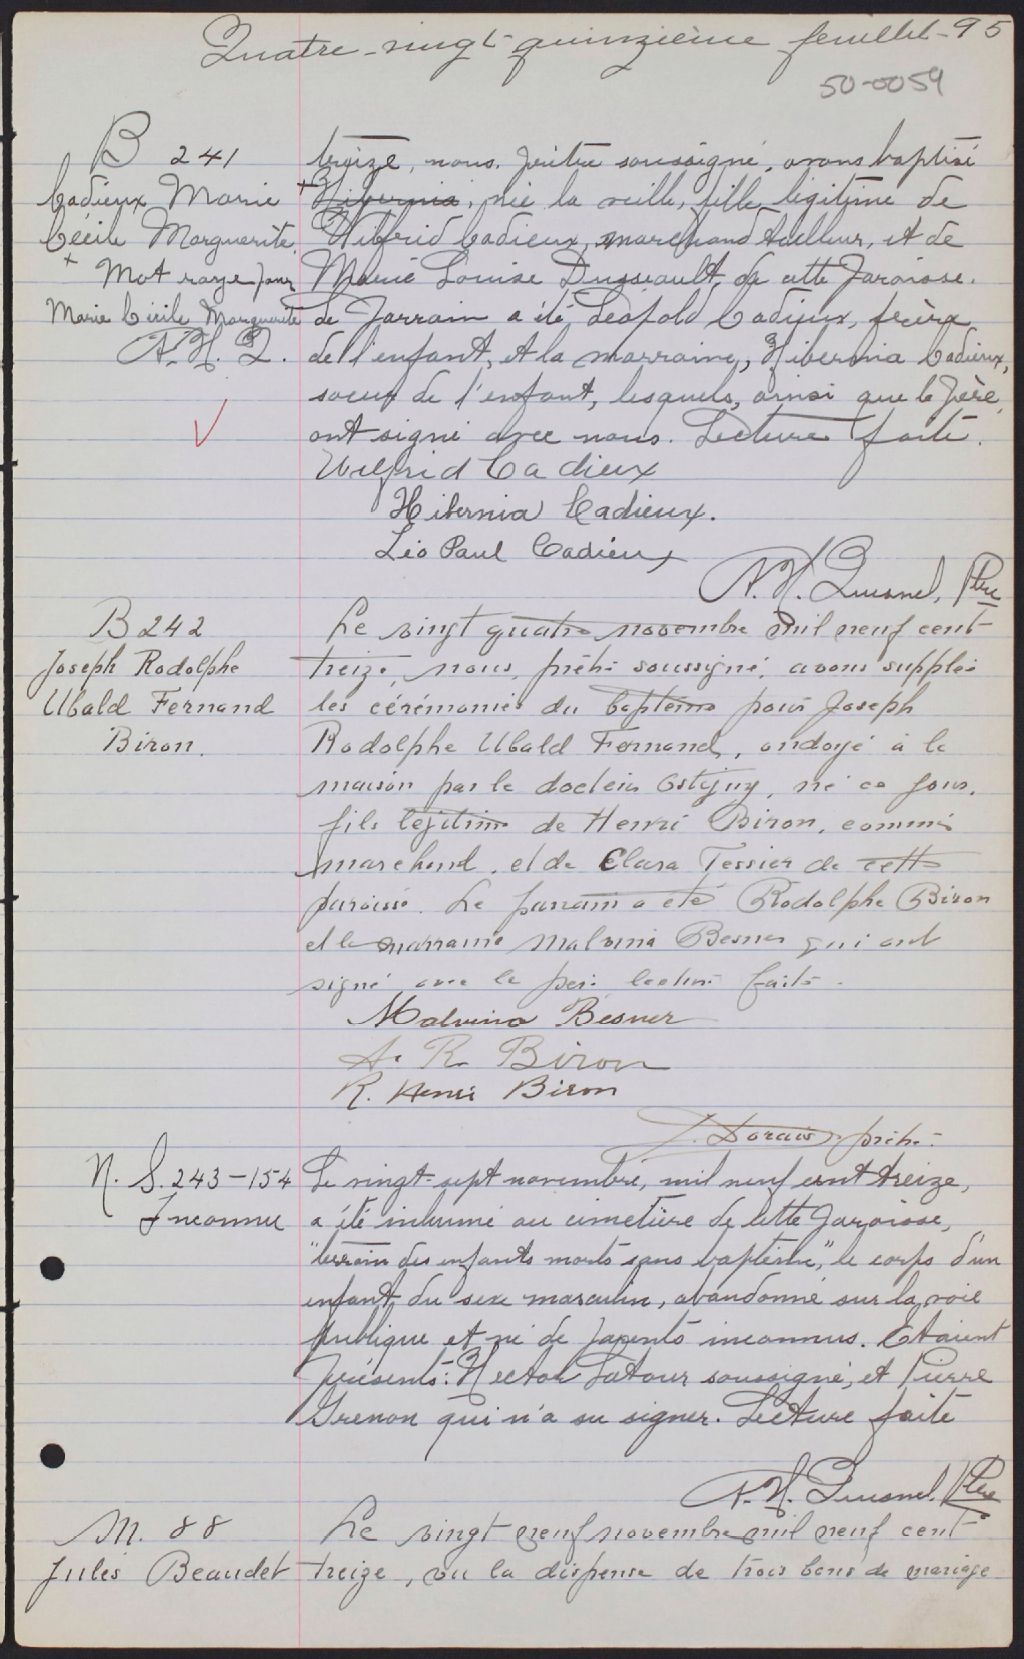 Quatre-vingt-quinzième feuillet - 95
50-0059
B 241
Cadieux Marie
Cécile Marguerite.
+ Mot rayé pour
Marie Cécile Marguerite
A. H. Q.
treize, nous, prêtre soussigné, avons baptisé
+ Hibernia, née la veille, fille légitime de
Wilfrid Cadieux, marchand tailleur, et de
Marie Louise Dusseault, de cette paroisse.
Le parrain a été Léopold Cadieux, frère
de l'enfant, et la marraine, Hibernia Cadieux,
soeur de l'enfant, lesquels, ainsi que le père,
ont signé avec nous. Lecture faite.
Wilfrid Cadieux
Hibernia Cadieux.
Léo Paul Cadieux
A. H. Quesnel, Ptre
B 242
Joseph Rodolphe
Ubald Fernand
Biron.
Le vingt quatre novembre mil neuf cent
treize, nous, prêtre soussigné, avons supplée
les cérémonies du baptême pour Joseph
Rodolphe Ubald Fernand, ondoyé à la
maison par le docteur Ostiguy, né ce jour,
fils légitime de Henri Biron, commis
marchand, et de Clara Tessier de cette
paroisse. Le parrain a été Rodolphe Biron
et la marraine Malvina Besner qui ont
signé avec le père. lecture faite.
Malvina Besner
A. R. Biron
R. Henri Biron
J. Dorais prêtre
N. S. 243-154
Inconnu
Le vingt-sept novembre, mil neuf cent treize,
a été inhumé au cimetière de cette paroisse,
"terrain des enfants morts sans baptême," le corps d'un
enfant du sexe masculin, abandonné sur la voie
publique et né de parents inconnus. Étaient
présents: Hector Latour soussigné, et Pierre
Grenon qui n'a su signer. Lecture faite
A. H. Quesnel, Ptre
M. 88
Jules Beaudet
Le vingt neuf novembre mil neuf cent
treize, vu la dispense de trois bans de mariage